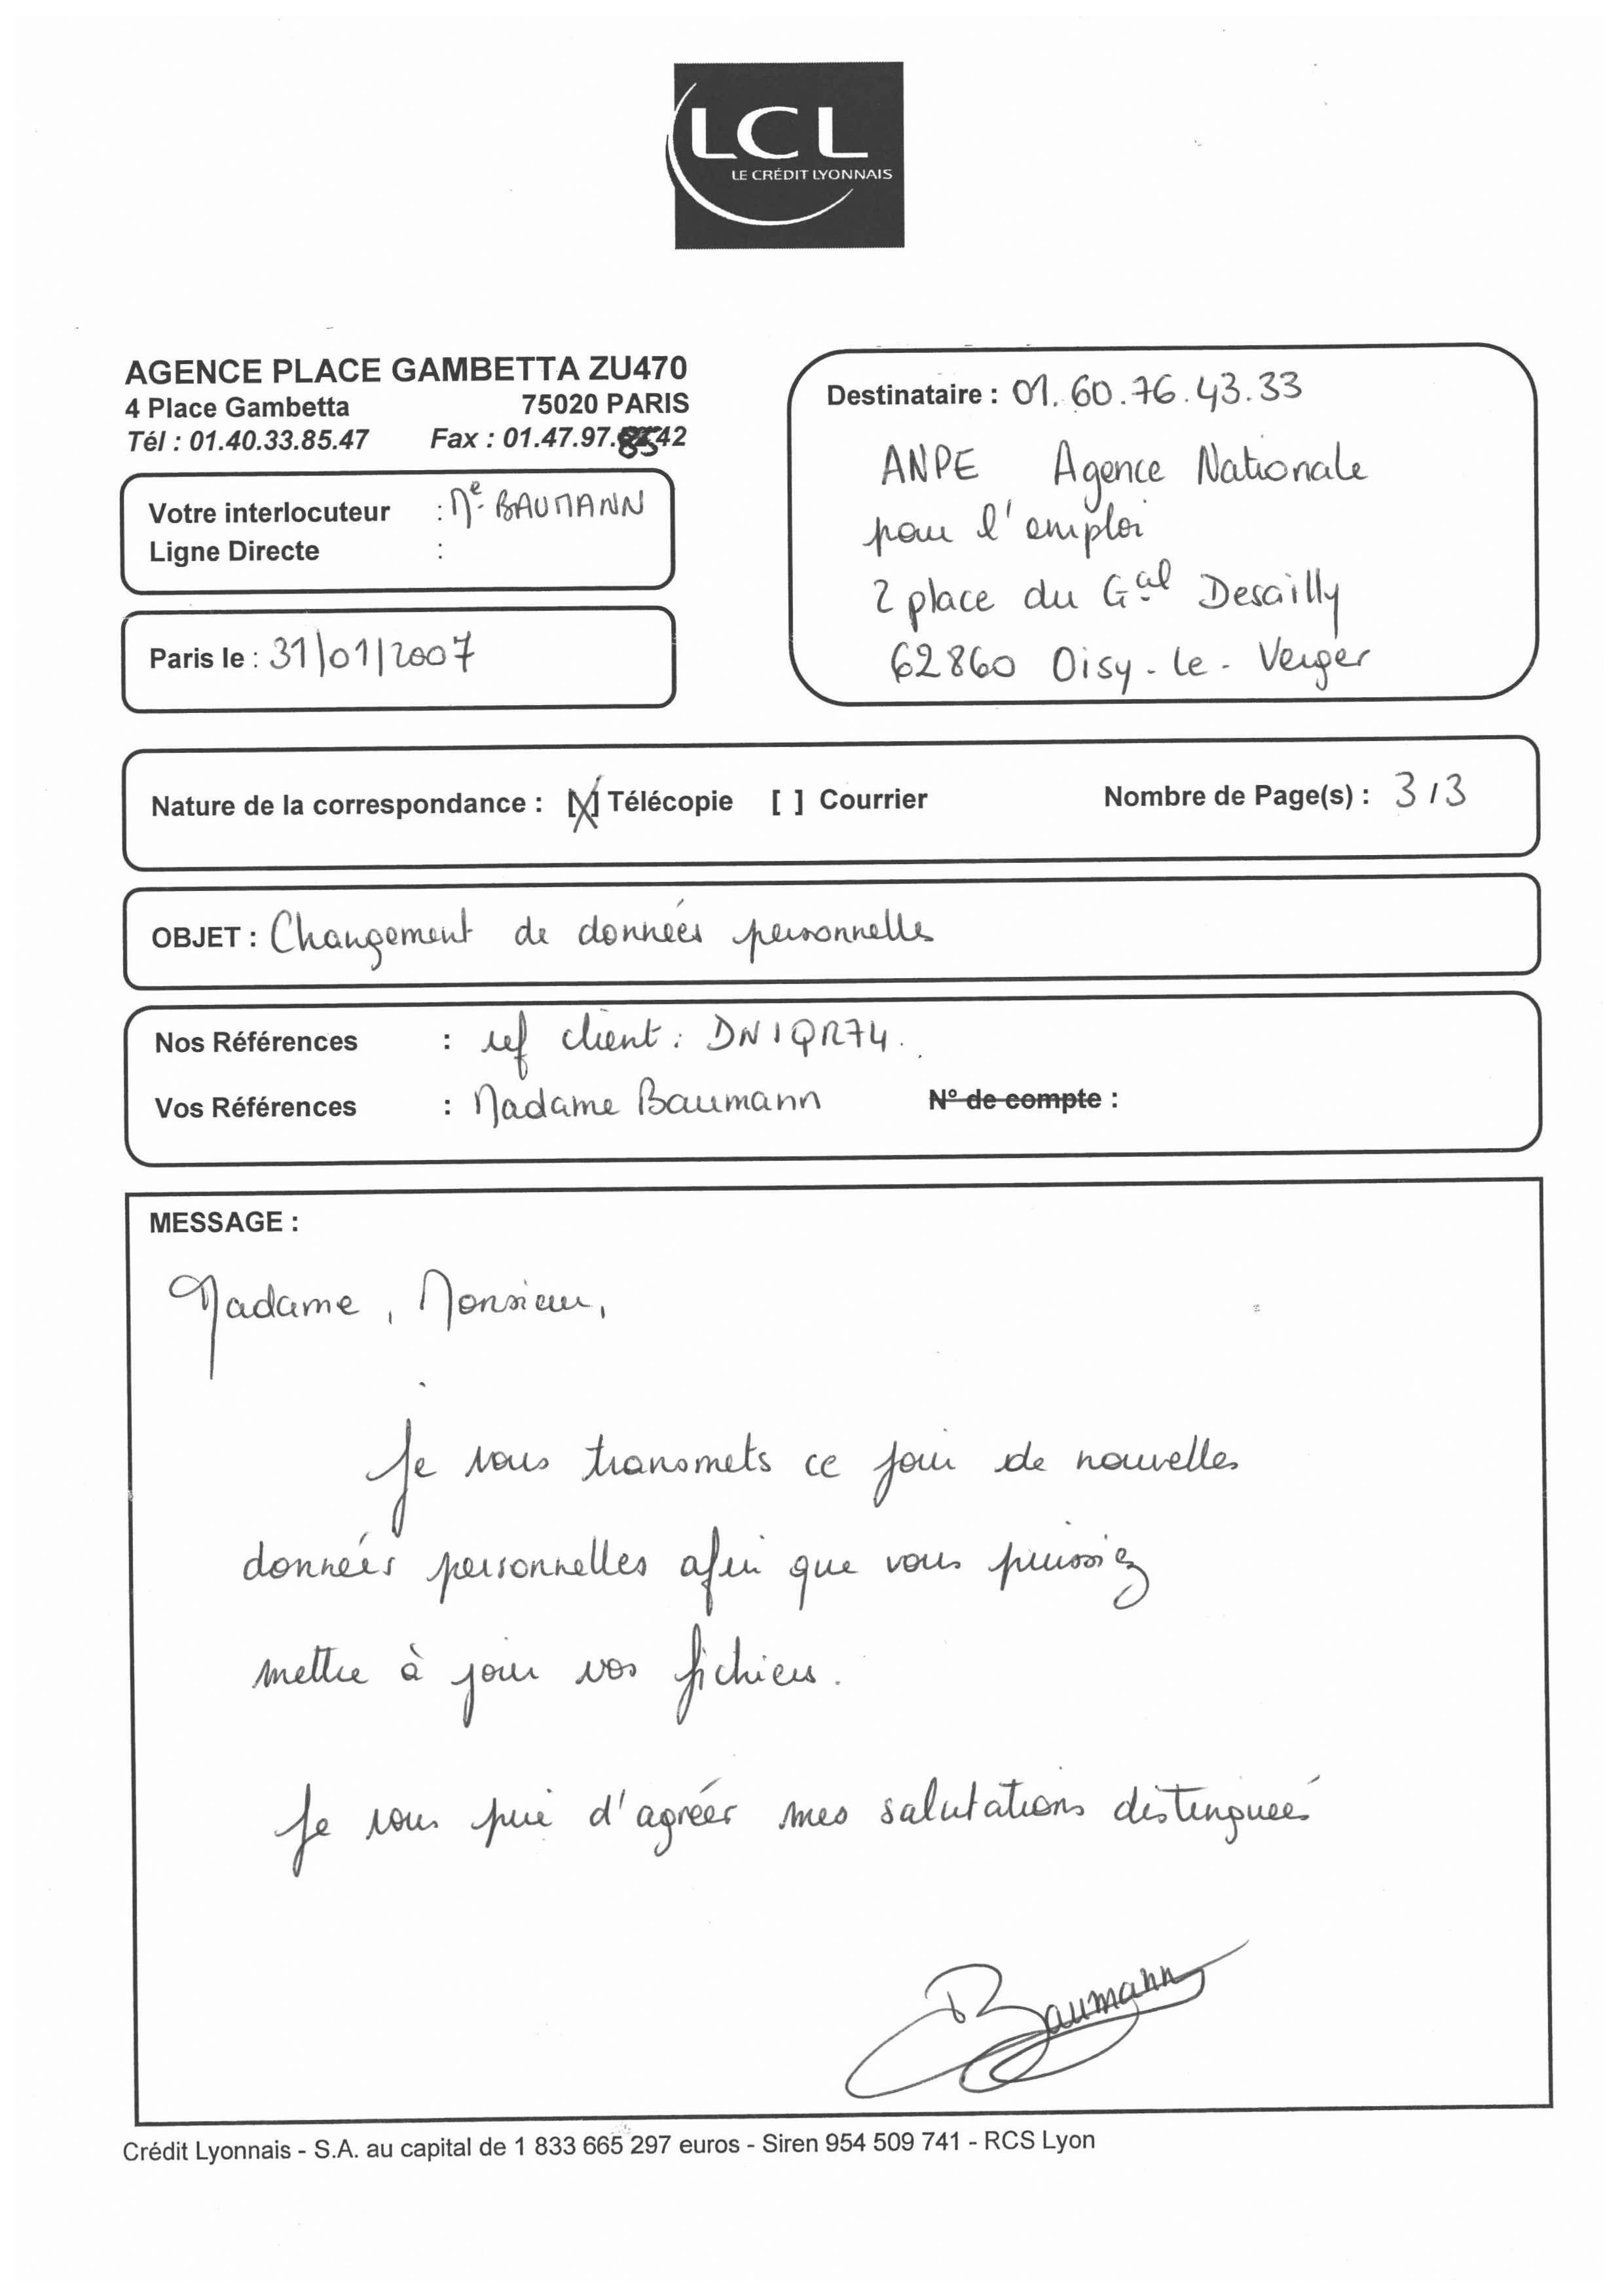 LCL
LE CRÉDIT LYONNAIS
AGENCE PLACE GAMBETTA ZU470
4 Place Gambetta 75020 PARIS
Tél : 01.40.33.85.47 Fax : 01.47.97.85.42
Votre interlocuteur : Me BAUMANN
Ligne Directe :
Paris le : 31/01/2007
Destinataire : 01.60.76.43.33
ANPE Agence Nationale
pour l'emploi
2 place du Gal Desailly
62860 Oisy-le-Verger
Nature de la correspondance : [X] Télécopie [ ] Courrier Nombre de Page(s) : 3/3
OBJET : Changement de données personnelles
Nos Références : ref client : DN1QR74.
Vos Références : Madame Baumann N° de compte :
MESSAGE :
Madame, Monsieur,
Je vous transmets ce jour de nouvelles
données personnelles afin que vous puissiez
mettre à jour vos fichiers.
Je vous prie d'agréer mes salutations distinguées
Baumann
Crédit Lyonnais - S.A. au capital de 1 833 665 297 euros - Siren 954 509 741 - RCS Lyon